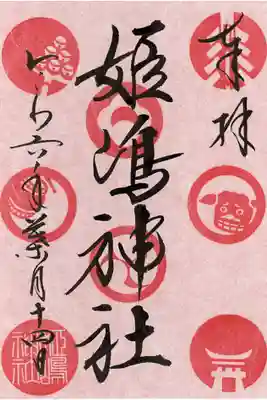 奉拝
姫嶋神社
令和六年葉月十四日
姫嶋
神社